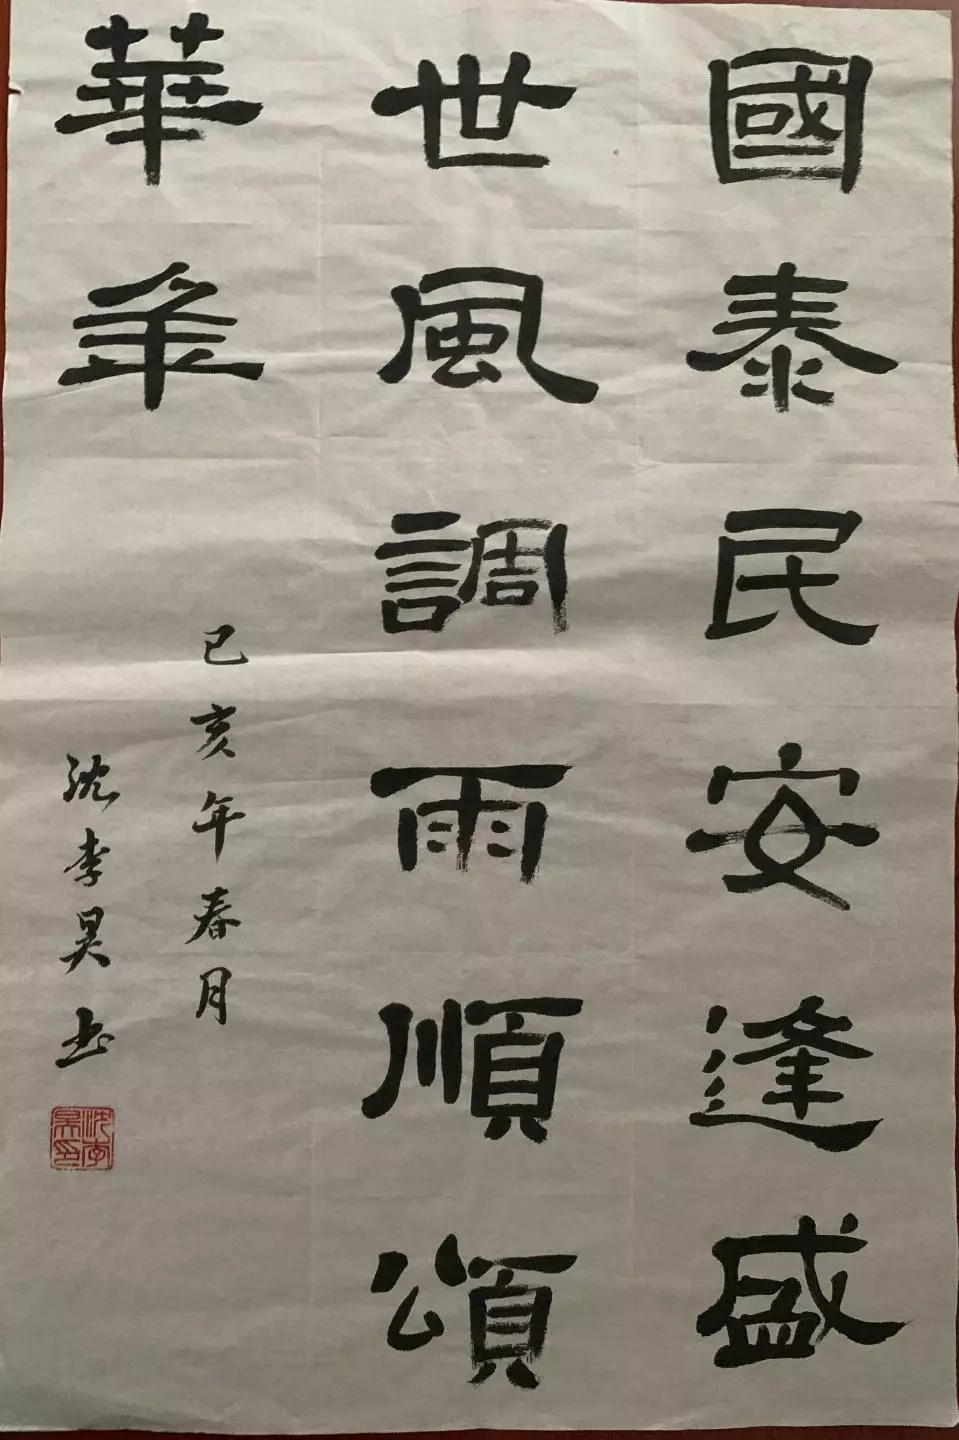 國泰民安逢盛
世風調雨順頌
華年
己亥年春月
沈李昊书
沈李昊印